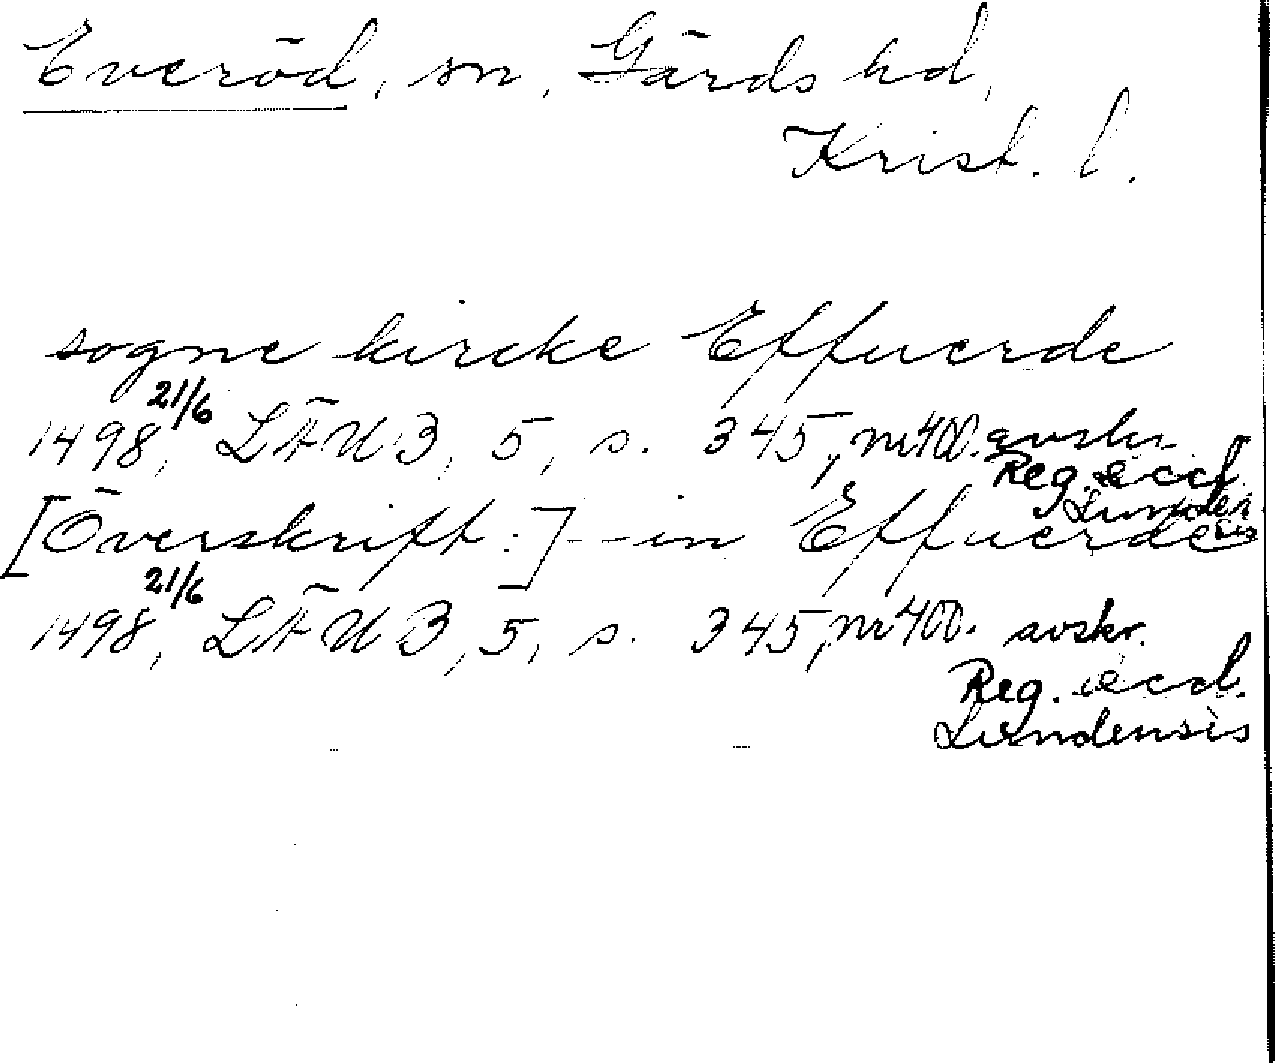 Everöd, sn, Gärds hd,
Krist. l.
sogne kircke Effuerde
1498, 21/6 LÄUB, 5, s. 345, nr 400. avskr.
Reg. eccl.
Lunden
sis
[Överskrift:] -- in Effuerde
1498, 21/6 LÄUB, 5, s. 345, nr 400. avskr.
Reg. eccl.
Lundensis